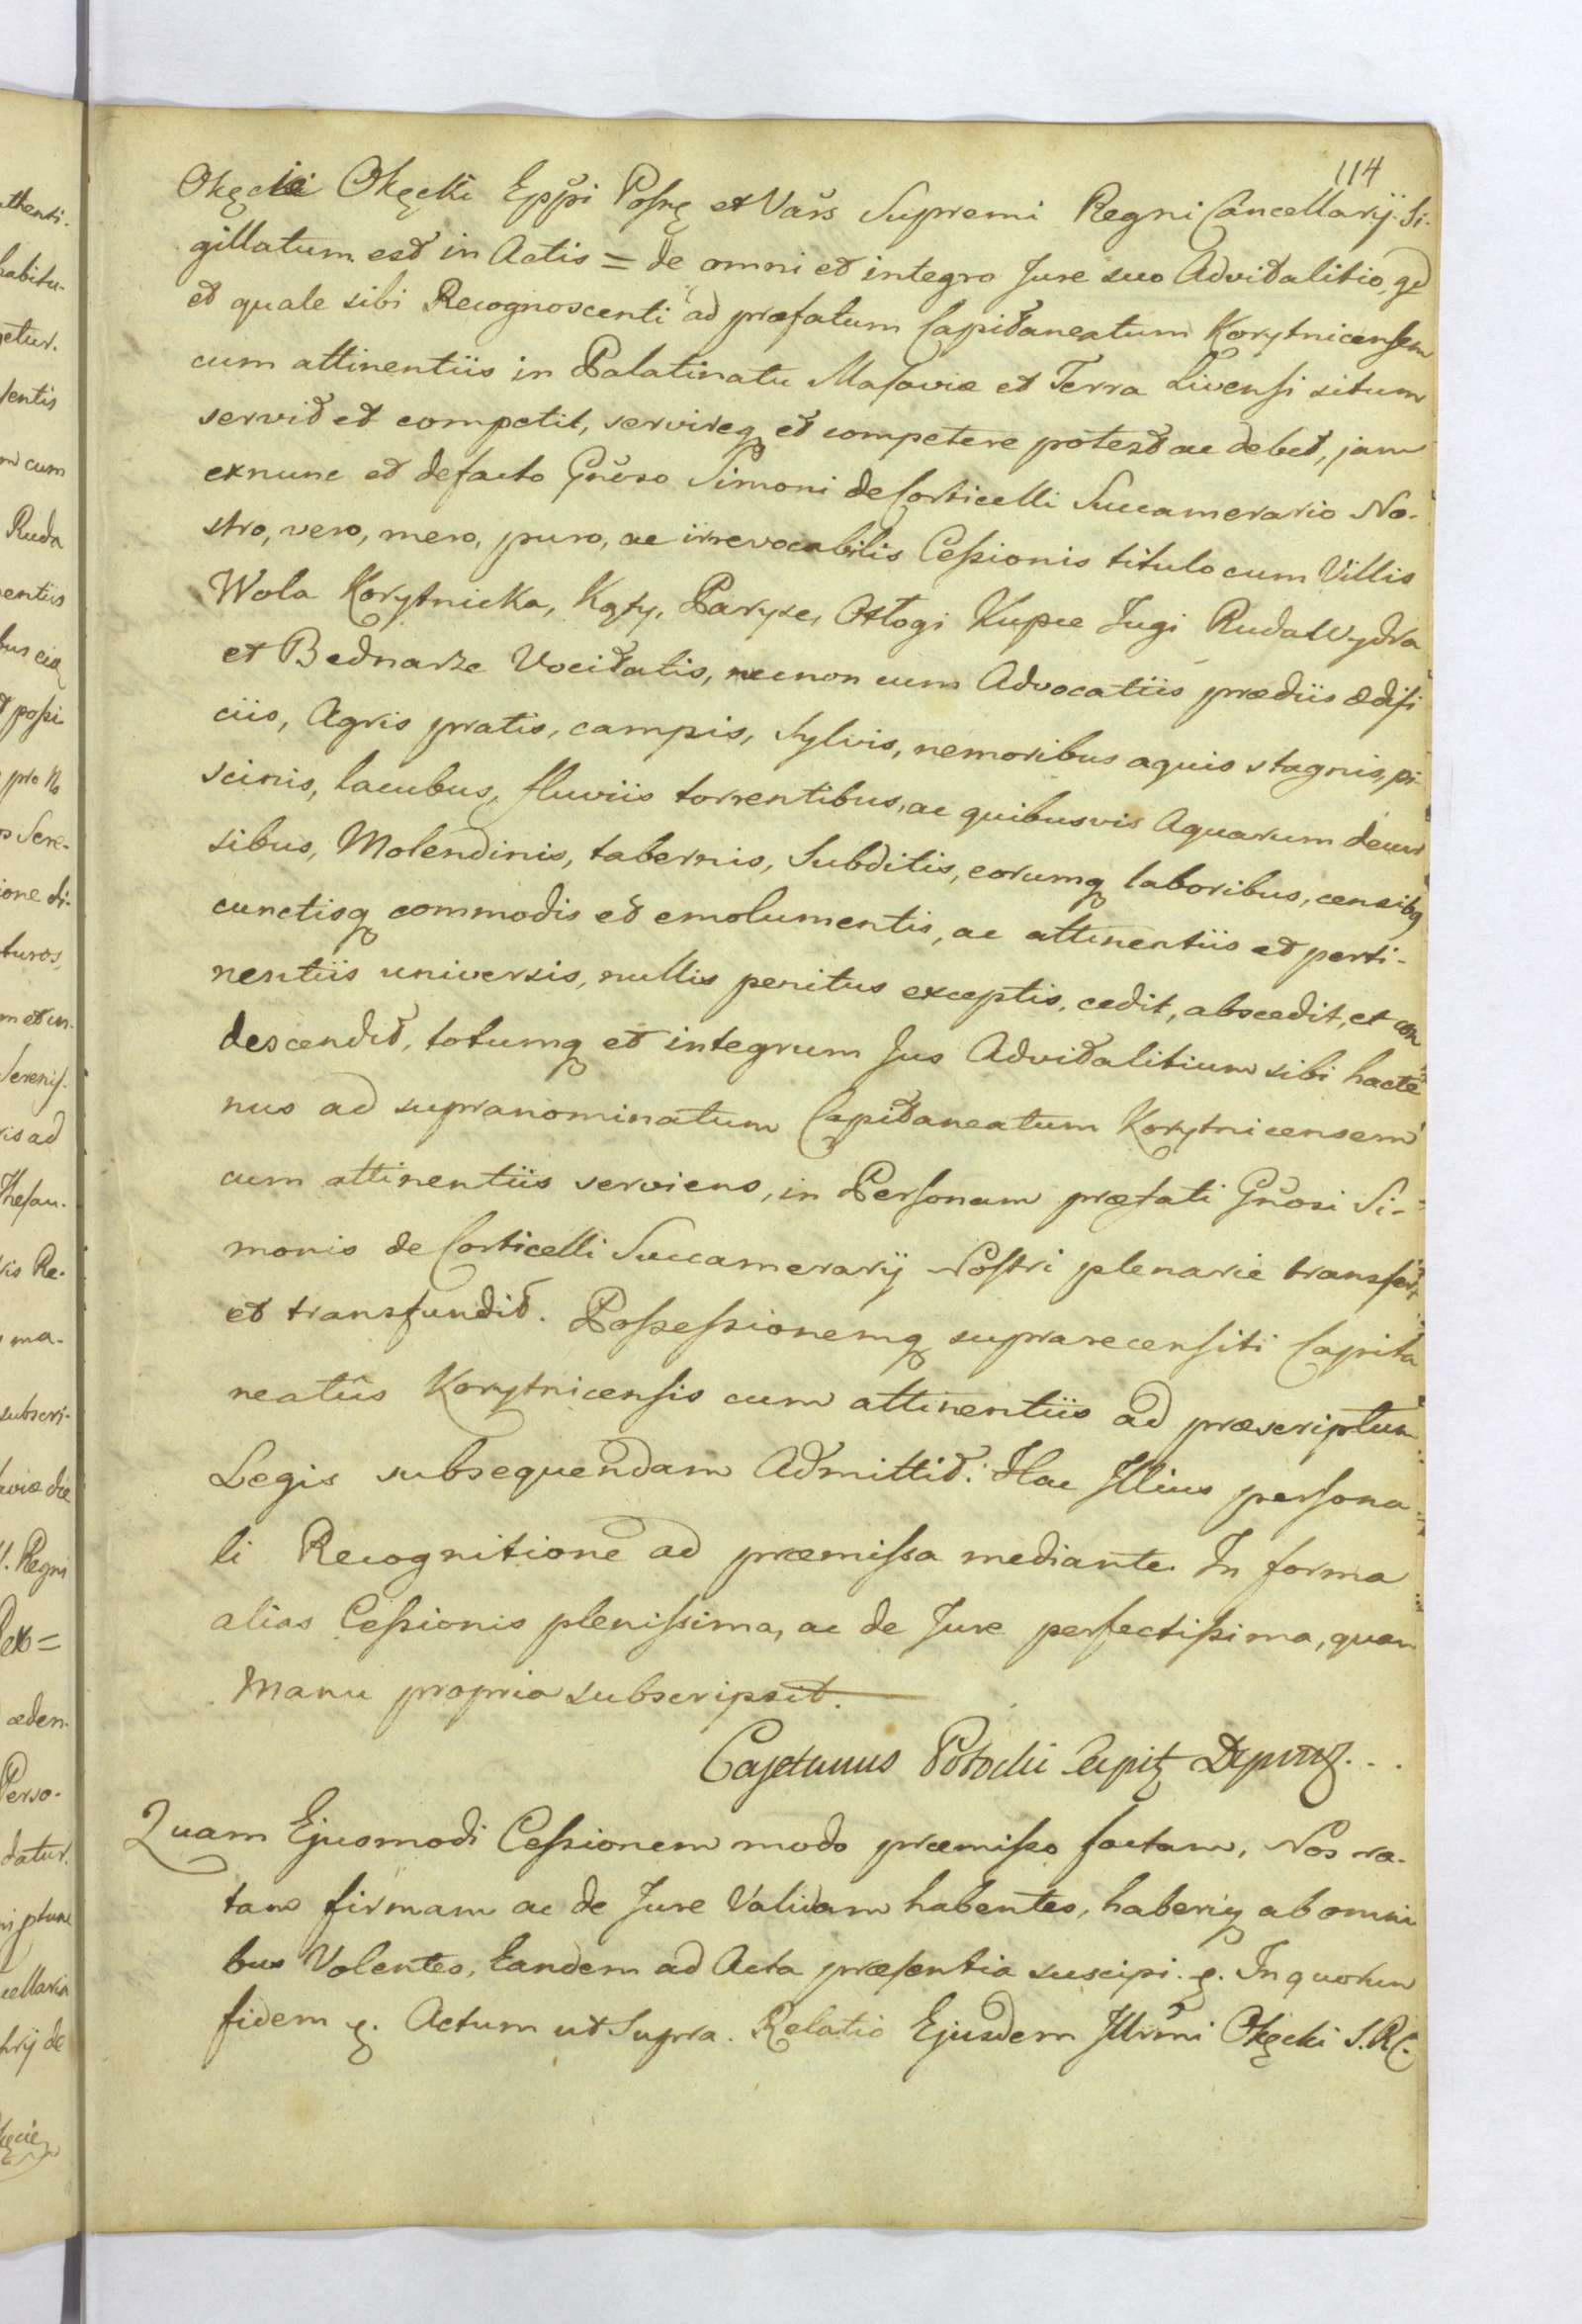 114
Okęcie Okęcki Eppi Posnę et Vars Supremi Regni Cancellarij Si-
gillatum est in Actis = de omni et integro Jure suo Advitalitio, qd
et quale sibi Recognoscenti ad præfatum Capitaneatum Korytnicensem
cum attinentiis in Palatinatu Masoviæ et Terra Livensi situm
servit et competit, servireq et competere potest ac debet, jam
exnunc et defacto Gnoso Simoni de Corticelli Succamerario No-
stro, vero, mero, puro, ac irrevocabilis Cessionis titulo cum Villis
Wola Korytnicka, Kąty, Paryse, Ostogi Kupce Jugi Ruda Wydra
et Bednarze Vocitatis, necnon cum Advocatiis prædiis ædifi
ciis, Agris pratis, campis, Sylvis, nemoribus aquis stagnis, pi-
scinis, lacubus, fluviis torrentibus, ac quibusvis Aquarum decur
sibus, Molendinis, tabernis, Subditis, eorumq laboribus, censibq
cunctisq commodis et emolumentis, ac attinentiis et perti-
nentiis universis, nullis penitus exceptis, cedit, abscedit, et con
descendit, totumq et integrum Jus Advitalitium sibi hacte
nus ad supranominatum Capitaneatum Korytnicensem
cum attinentiis serviens, in Personam præfati Gnosi Si-
monis de Corticelli Succamerarij Nostri plenarie transfert
et transfundit. Possessionemq suprarecensiti Capita
neatûs Korytnicensis cum attinentiis ad præscriptum
Legis subsequendam Admittit. Hac Illius persona
li Recognitione ad præmissa mediante. In forma
alias Cessionis plenissima, ac de Jure perfectissima, quam
Manu propria subscripsit.
Cajetanus Potocki Capit
Quam Ejusmodi Cessionem modo præmisso factam, Nos ra-
tam firmam ac de Jure Validam habentes, haberiq ab omni
bus Volentes, Eandem ad Acta præsentia suscipi. ę. In quorum
fidem ę. Actum ut Supra. Relatio Ejusdem Illrmi Okęcki S.R.C.